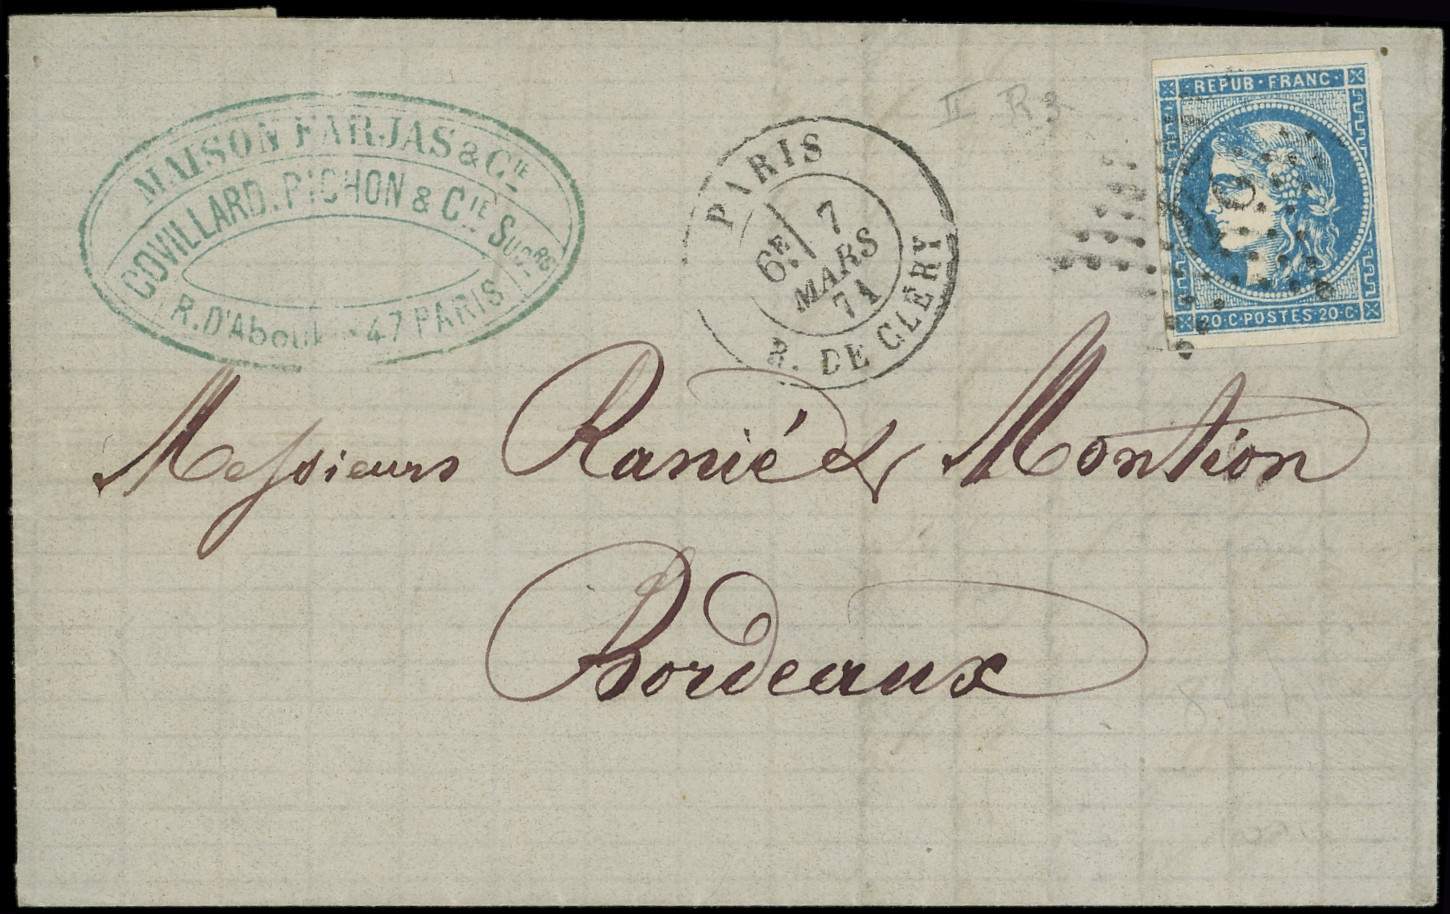 MAISON FARJAS & CIE
COVILLARD. PICHON & CIE SUCRS
R. D'Aboukir 47 PARIS
PARIS
6E 7
MARS
71
R. DE CLERY
II R3
REPUB·FRANC·
20·C·POSTES·20·C
Messieurs Ranié & Montion
Bordeaux